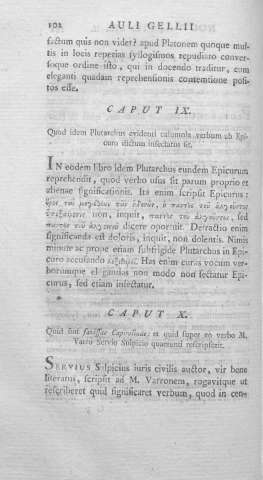 102 AULI GELLII
factum quis non videt? apud Platonem quoque mul-
tis in locis reperias syllogismos repudiato conver-
soque ordine isto, qui in docendo traditur, cum
eleganti quadam reprehensionis contemtione posi-
tos esse.
CAPUT IX.
Quod idem Plutarchus evidenti calumnia verbum ab Epi-
curo dictum insectatus sit.
IN eodem libro idem Plutarchus eundem Epicurum
reprehendit, quod verbo usus sit parum proprio et
alienae significationis. Ita enim scripsit Epicurus:
ὅρος τοῦ μεγέθους τῶν ἡδονῶν, ἡ παντὸς τοῦ ἀλγοῦντος
ὑπεξαίρεσις non, inquit, παντὸς τοῦ ἀλγοῦντος, sed
παντὸς τοῦ ἀλγεινοῦ dicere oportuit. Detractio enim
significanda est doloris, inquit, non dolentis. Nimis
minute ac prope etiam subfrigide Plutarchus in Epi-
curo accusando Has enim curas vocum ver-
borumque el gantias non modo non sectatur Epi-
curus, sed etiam insectatur.
CAPUT X.
Quid sint favisae Capitolinae: et quid super eo verbo M.
Varro Servio Sulpicio quaerenti rescripserit.
SERVIUS Sulpicius iuris civilis auctor, vir bene
literatus, scripsit ad M. Varronem, rogavitque ut
rescriberet quid significaret verbum, quod in cens